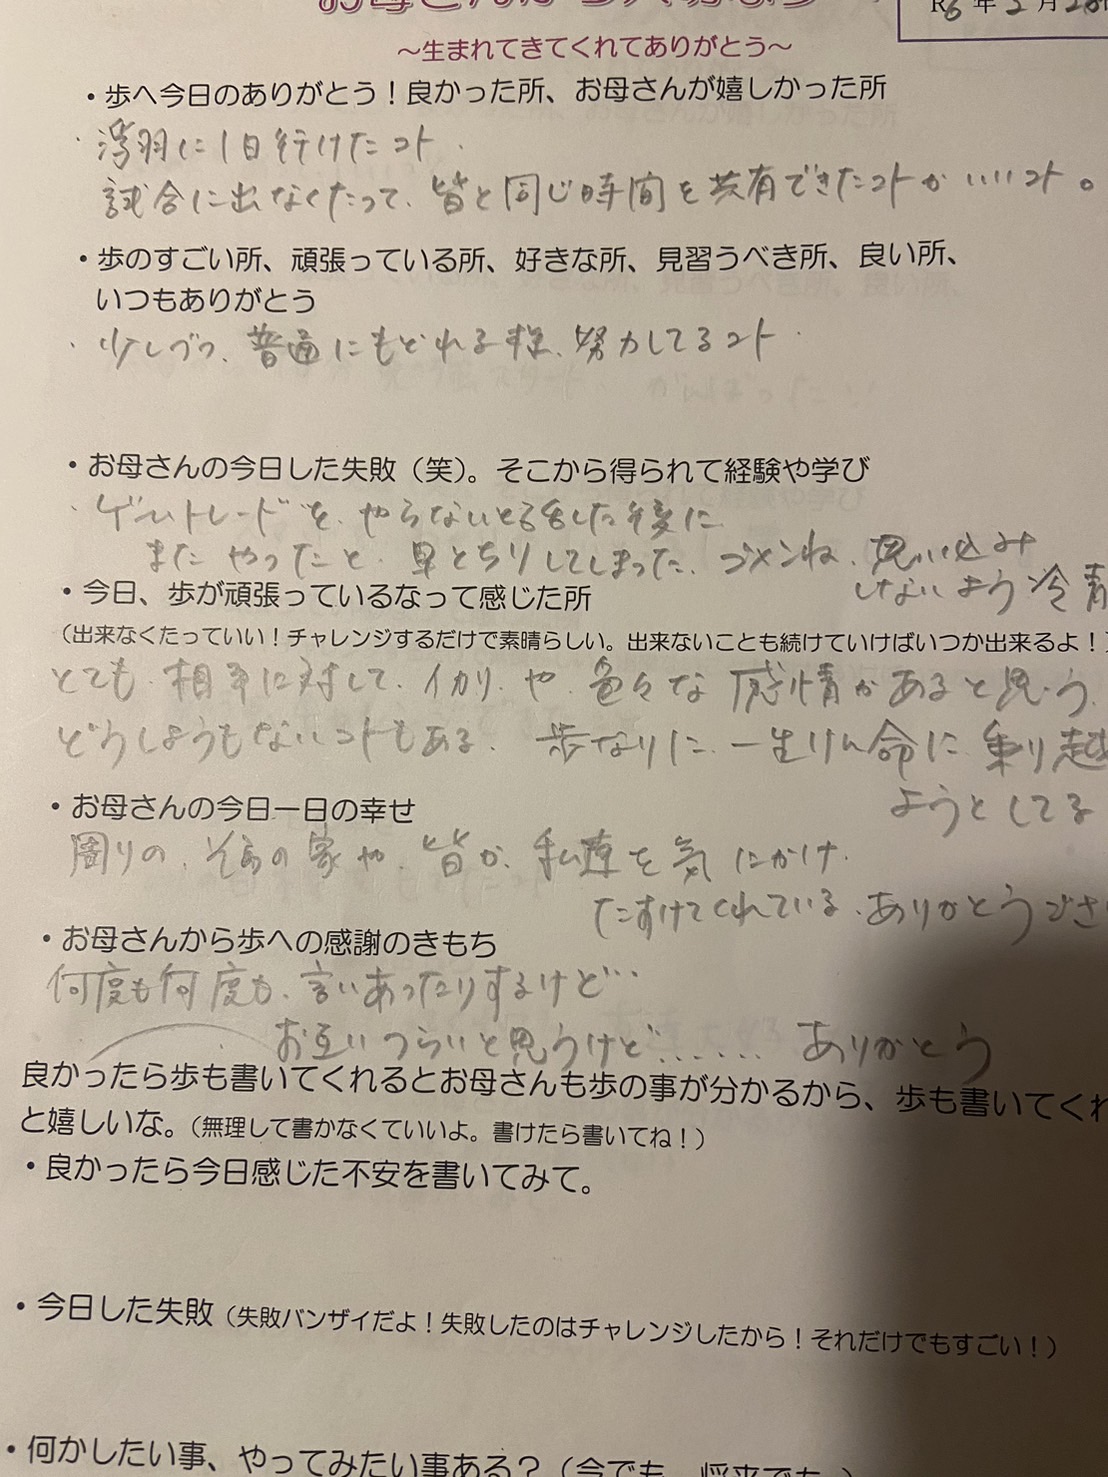 R6年2月28
～生まれてきてくれてありがとう～
・歩へ今日のありがとう！良かった所、お母さんが嬉しかった所
・浮羽に1日行けたコト.
試合に出なくたって、皆と同じ時間を共有できたコトがいいコト。
・歩のすごい所、頑張っている所、好きな所、見習うべき所、良い所、
いつもありがとう
・少しづつ、普通にもどれる様、努力してるコト.
・お母さんの今日した失敗（笑）。そこから得られて経験や学び
・ゲームトレードを、やらないと話した後に
またやったと、早とちりしてしまった、ゴメンね、思い込み
しないよう冷静
・今日、歩が頑張っているなって感じた所
（出来なくたっていい！チャレンジするだけで素晴らしい。出来ないことも続けていけばいつか出来るよ！）
とても、相手に対して、イカリや、色々な感情があると思う、
どうしようもないコトもある、歩なりに、一生けん命に乗り越
ようとしてる
・お母さんの今日一日の幸せ
周りの、の家や、皆が、私達を気にかけ、
たすけてくれている、ありがとうござ
・お母さんから歩への感謝のきもち
何度も何度も、言いあったりするけど…
お互いつらいと思うけど……ありがとう
良かったら歩も書いてくれるとお母さんも歩の事が分かるから、歩も書いてくれ
と嬉しいな。（無理して書かなくていいよ。書けたら書いてね！）
・良かったら今日感じた不安を書いてみて。
・今日した失敗（失敗バンザイだよ！失敗したのはチャレンジしたから！それだけでもすごい！）
・何かしたい事、やってみたい事ある？（今でも、将来でも。）